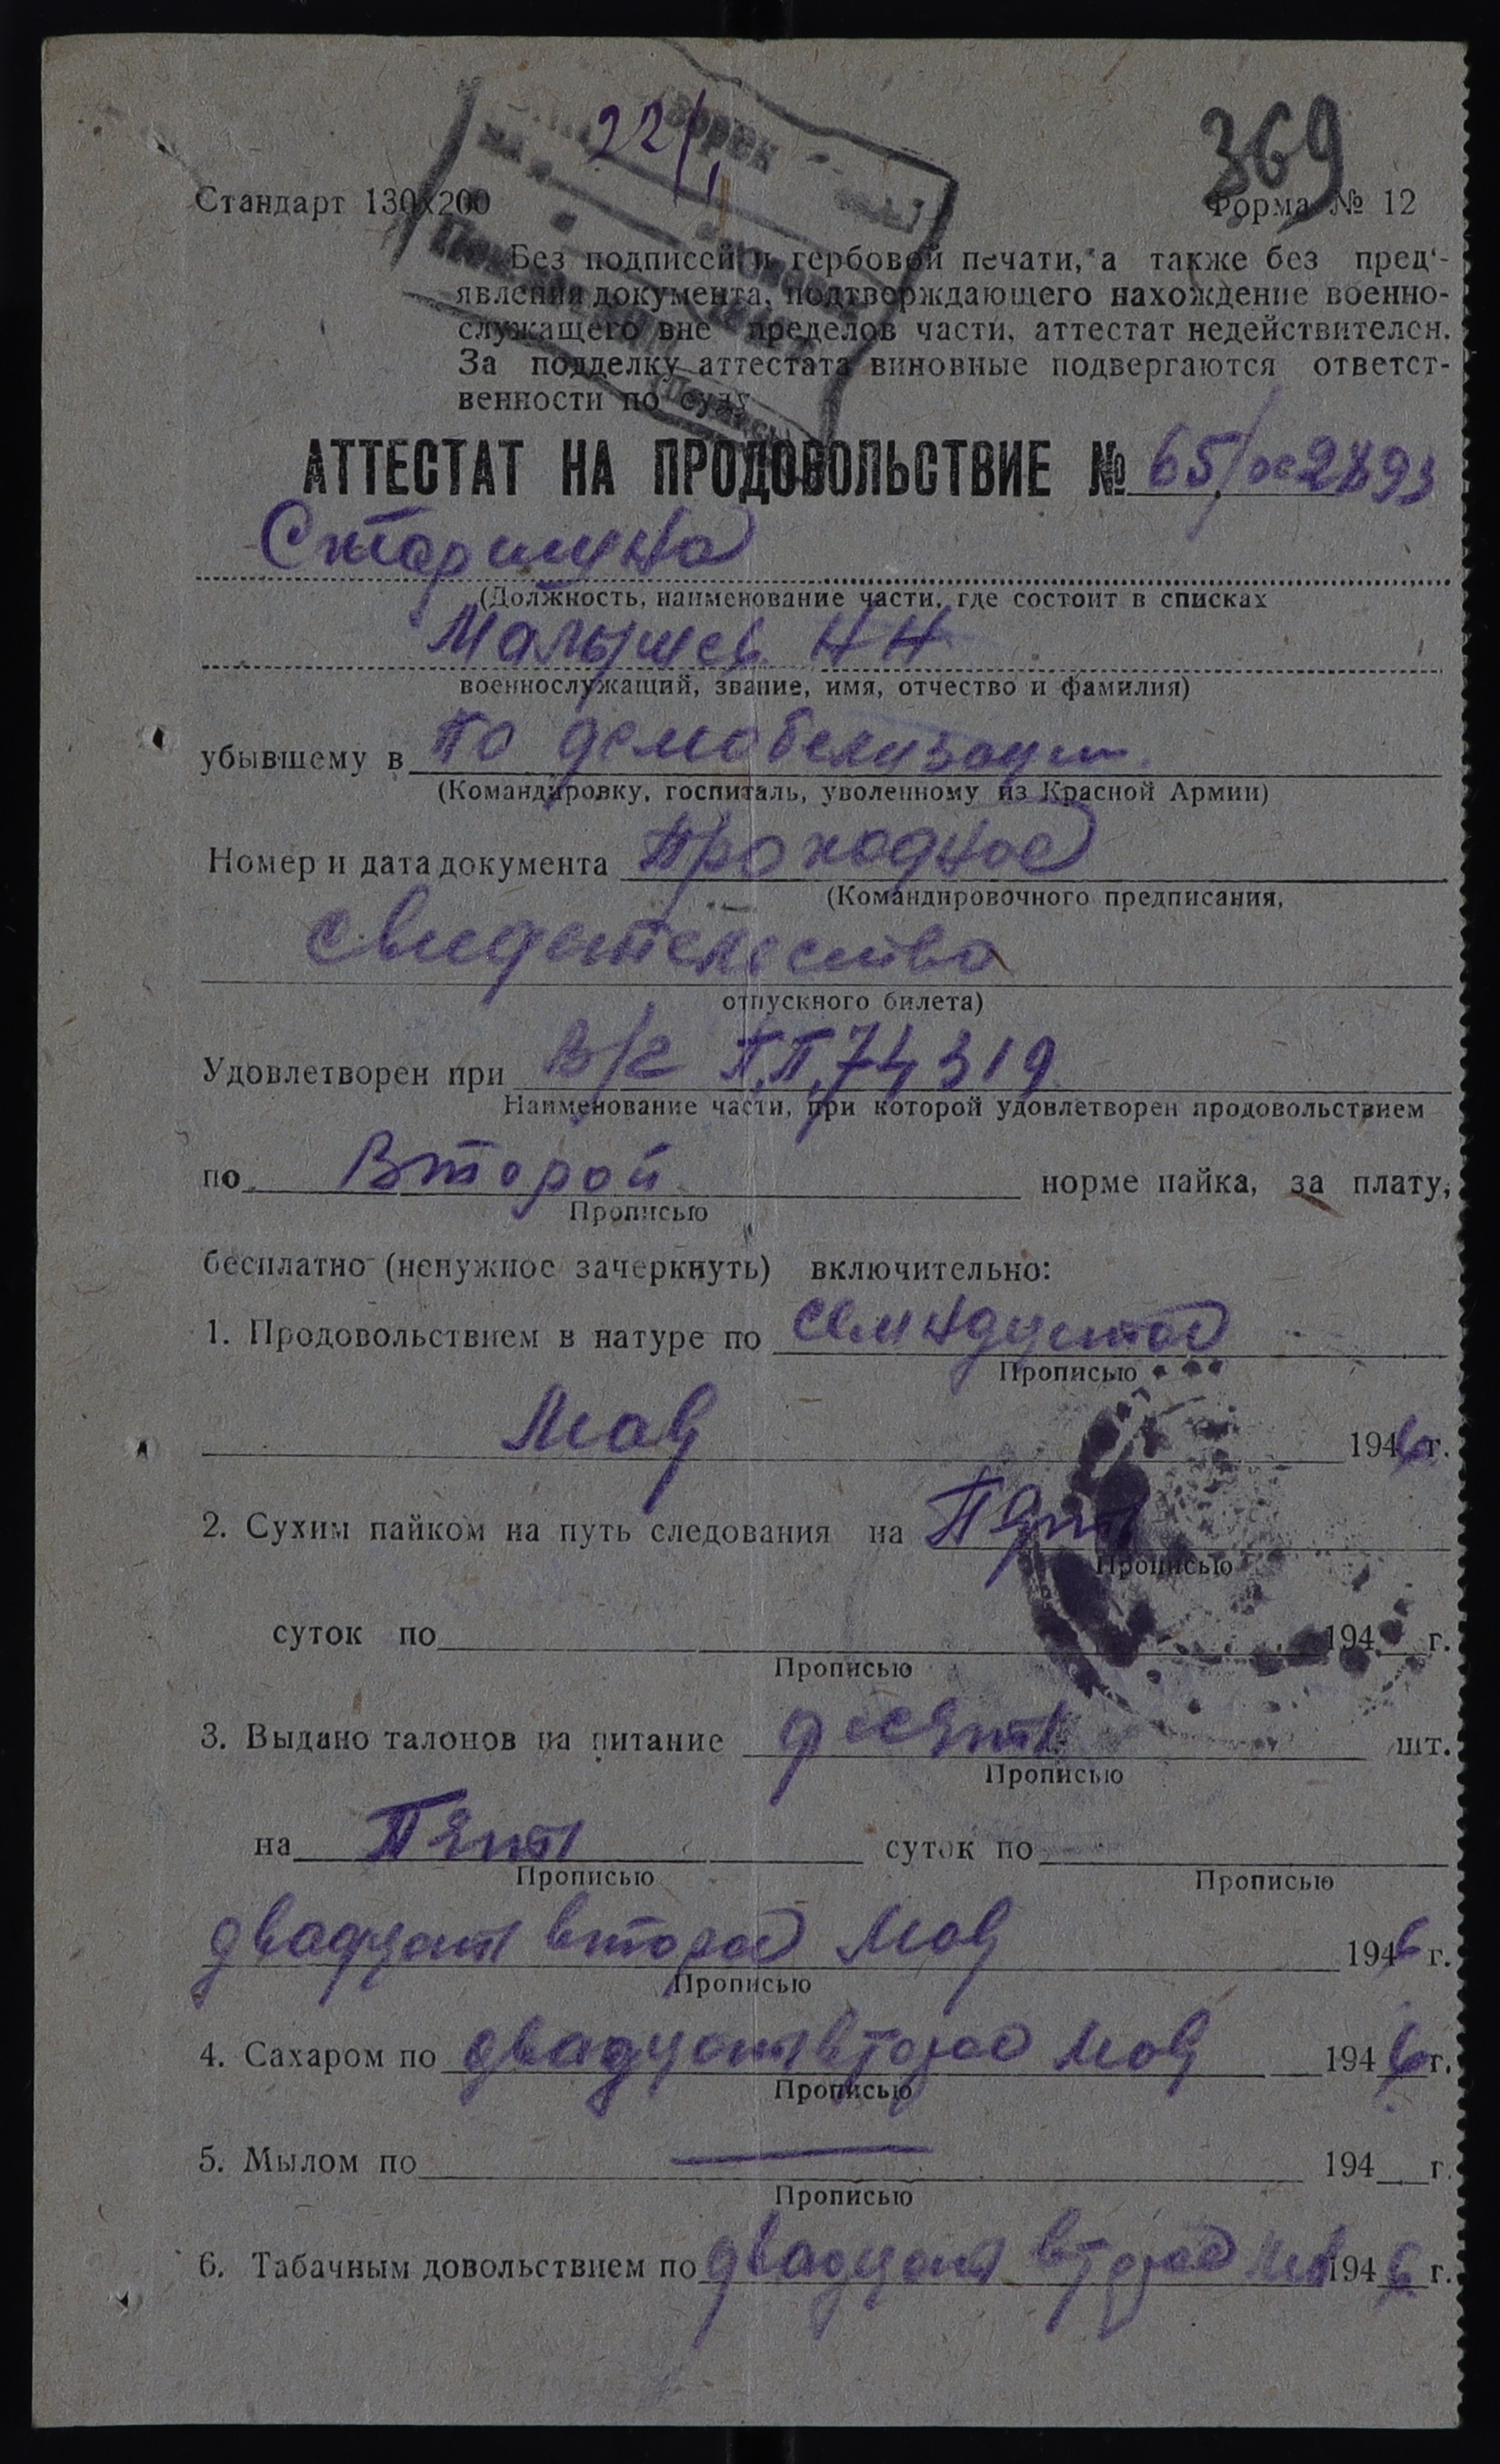 369
22/1
Стандарт 130х200
Форма № 12
Без подписей и гербовой печати, а также без пред‘-
явления документа, подтверждающего нахождение военно-
служащего вне пределов части, аттестат недействителен.
За подделку аттестата виновные подвергаются ответст-
венности по суду
АТТЕСТАТ НА ПРОДОВОЛЬСТВИЕ № 65/
Старшина
(Должность, наименование части, где состоит в списках
Малышев Н Н
военнослужащий, звание, имя, отчество и фамилия)
убывшему в по демобелизации
(Командировку, госпиталь, уволенному из Красной Армии)
Номер и дата документа Проходное
(Командировочного предписания,
свидетелество
отпускного билета)
Удовлетворен при В/г П.П. 74319
Наименование части, при которой удовлетворен продовольствием
по Второй норме пайка, за плату,
Прописью
бесплатно (ненужное зачеркнуть) включительно:
1. Продовольствием в натуре по семнадцатое
Прописью
Мая 1946 г.
2. Сухим пайком на путь следования на Пять
Прописью
суток по 194 г.
Прописью
3. Выдано талонов на питание десять шт.
Прописью
на Пять суток по
Прописью Прописью
двадцать второе Мая 1946 г.
Прописью
4. Сахаром по двадцать второе Мая 1946 г.
Прописью
5. Мылом по — 194 г.
Прописью
6. Табачным довольствием по двадцать второе мая 1946 г.